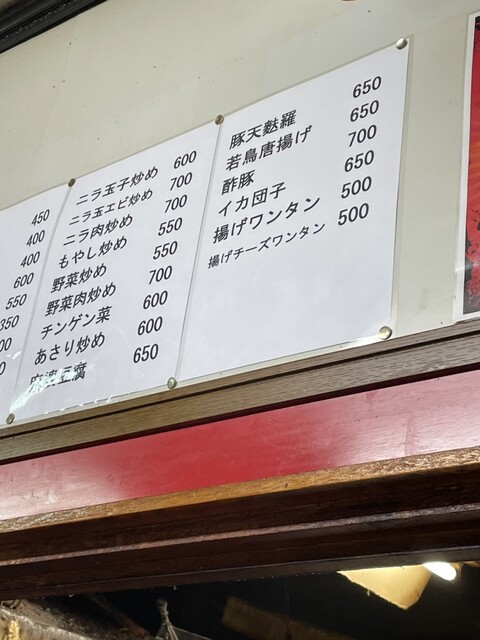 450
400
400
600
550
350
00
0
ニラ玉子炒め 600
ニラ玉エビ炒め 700
ニラ肉炒め 700
もやし炒め 550
野菜炒め 550
野菜肉炒め 700
チンゲン菜 600
あさり炒め 600
麻婆豆腐 650
豚天麩羅 650
若鳥唐揚げ 650
酢豚 700
イカ団子 650
揚げワンタン 500
揚げチーズワンタン 500